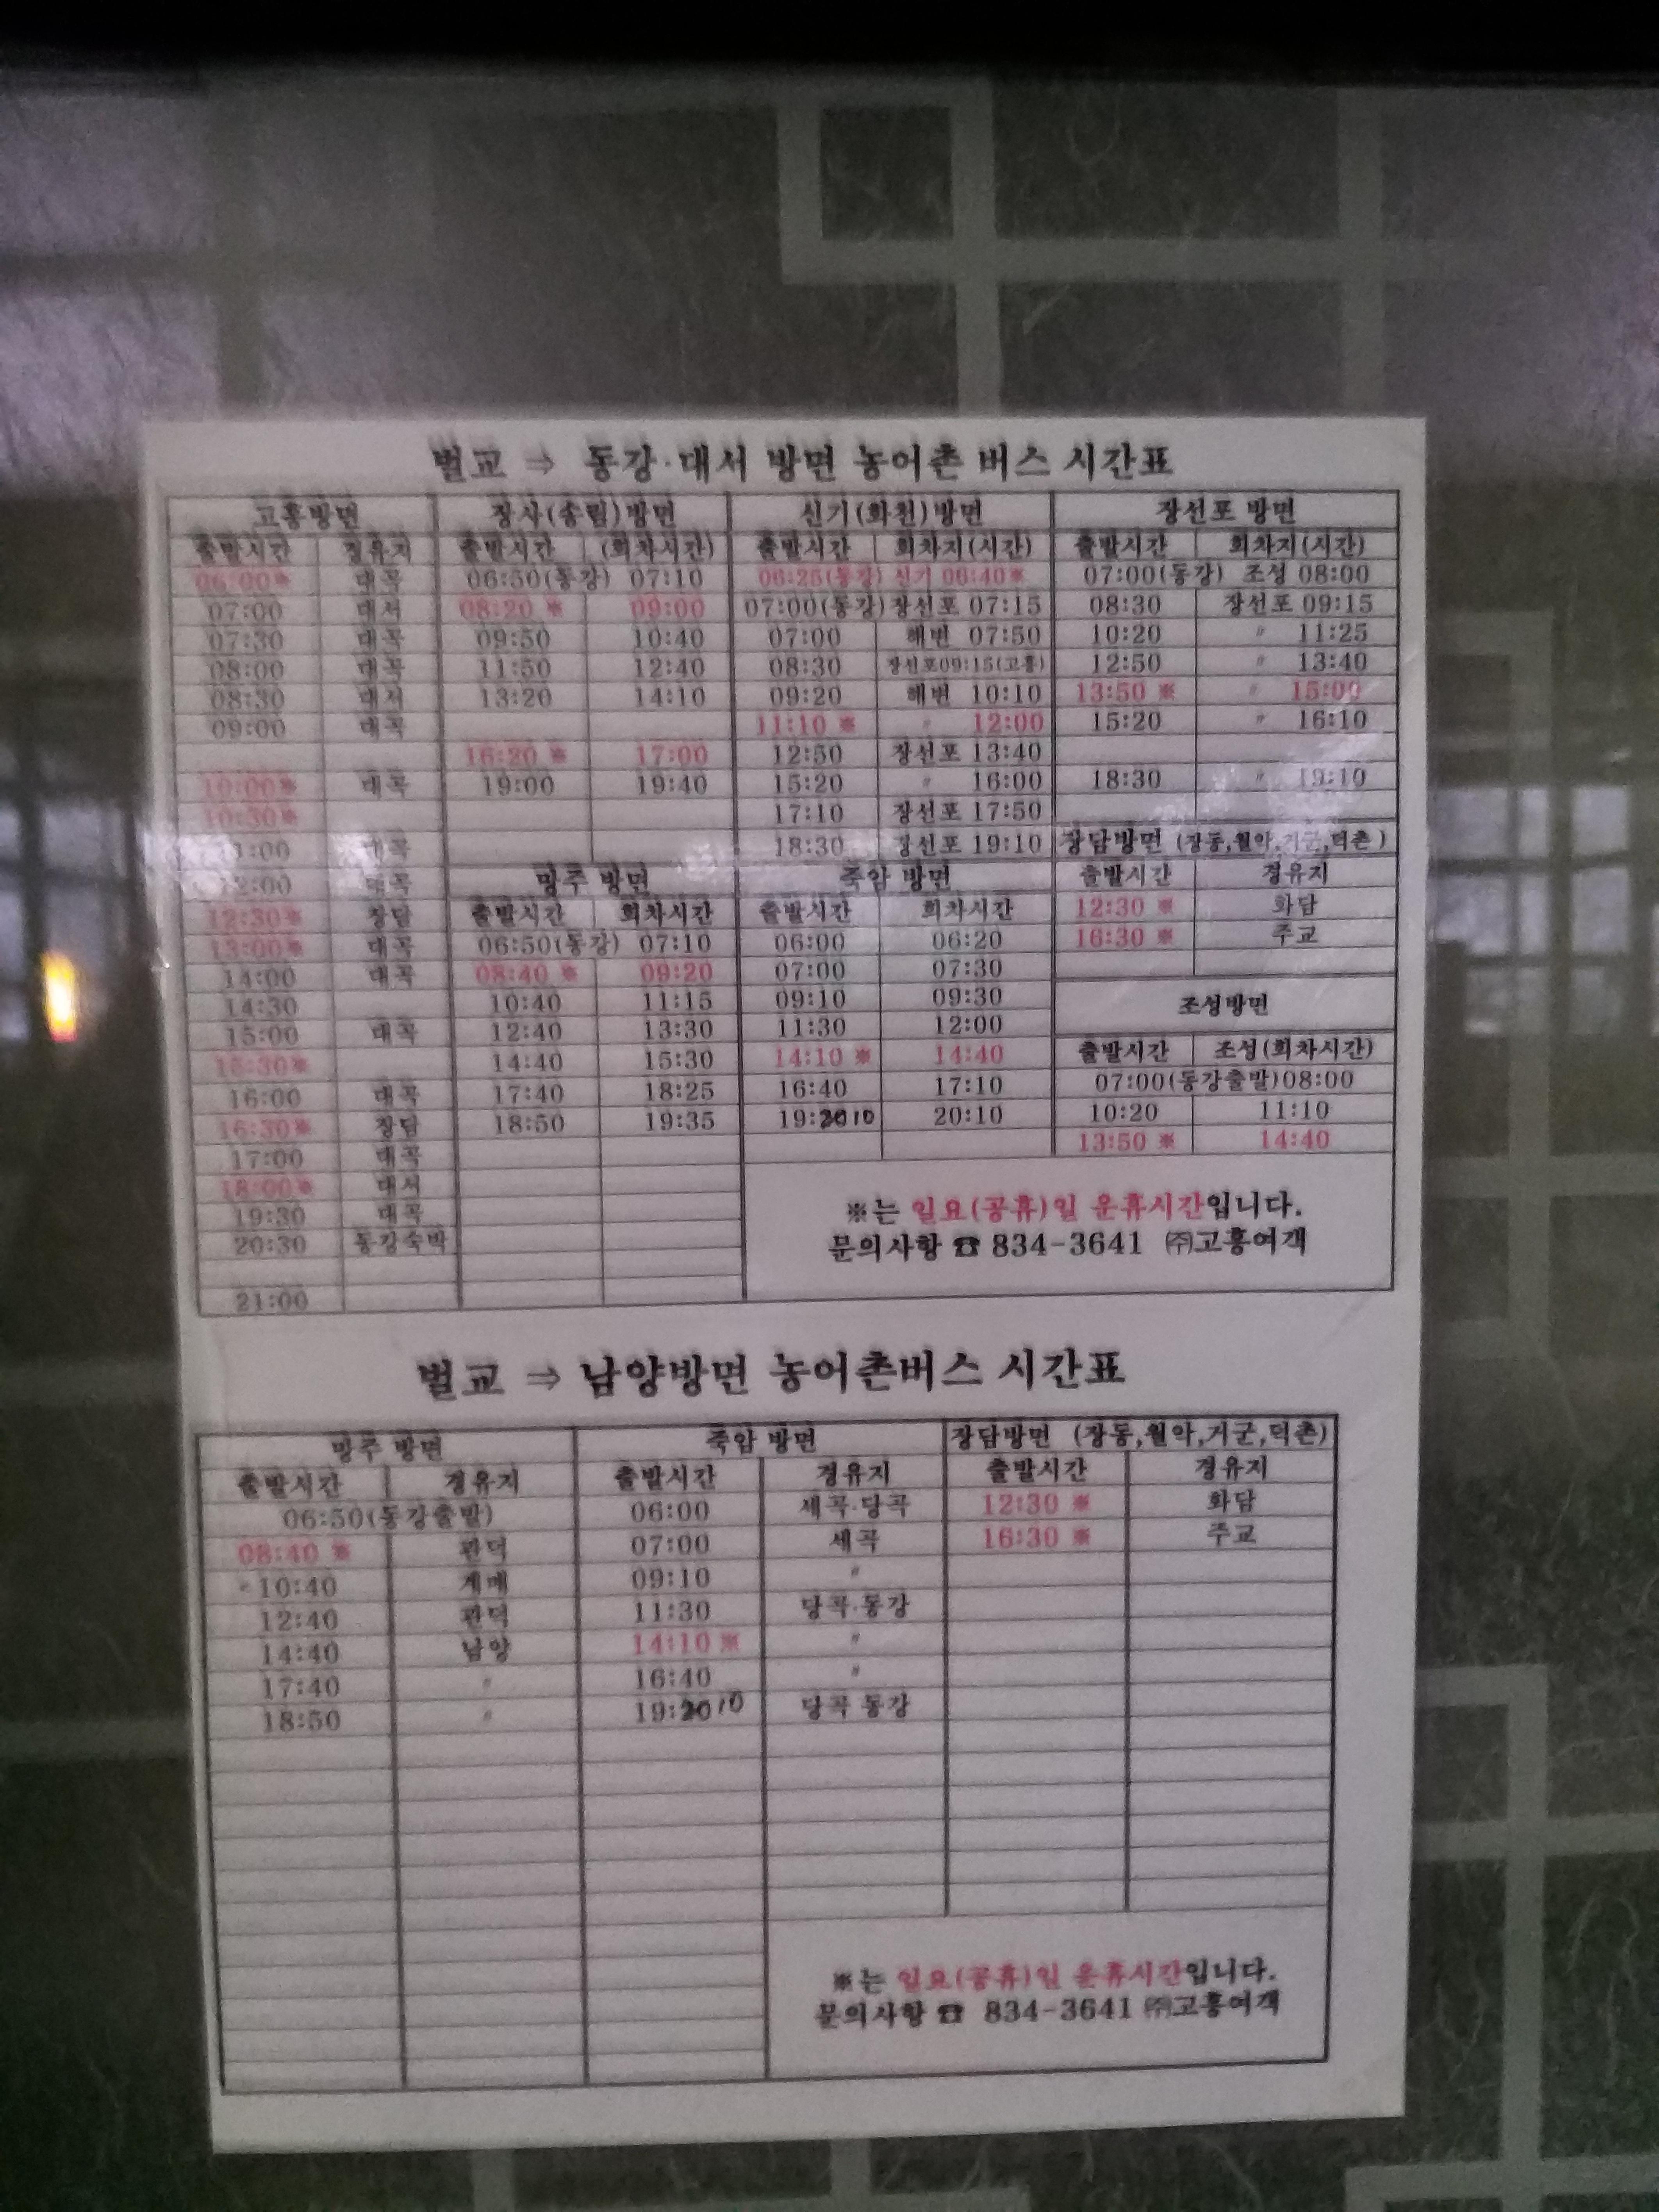 벌교 ⇒ 동강·대서 방면 농어촌 버스 시간표
고흥방면 장사(송림)방면 신기(화천)방면 장선포 방면
출발시간 경유지 출발시간 (회차시간) 출발시간 회차지(시간) 출발시간 회차지(시간)
06:00※ 대곡 06:50(동강) 07:10 06:25(동강) 신기 06:40※ 07:00(동강) 조성 08:00
07:00 대서 08:20 ※ 09:00 07:00(동강) 장선포 07:15 08:30 장선포 09:15
07:30 대곡 09:50 10:40 07:00 해변 07:50 10:20 〃 11:25
08:00 대곡 11:50 12:40 08:30 장선포09:15(고흥) 12:50 〃 13:40
08:30 대서 13:20 14:10 09:20 해변 10:10 13:50 ※ 〃 15:00
09:00 대곡 11:10 ※ 〃 12:00 15:20 〃 16:10
16:20 ※ 17:00 12:50 장선포 13:40
10:00※ 대곡 19:00 19:40 15:20 〃 16:00 18:30 〃 19:10
10:30※ 17:10 장선포 17:50
1:00 대곡 18:30 장선포 19:10 장담방면 (장동,월악,거군,덕촌)
12:00 대곡 망주 방면 죽암 방면 출발시간 경유지
12:30※ 장담 출발시간 회차시간 출발시간 회차시간 12:30 ※ 화담
13:00※ 대곡 06:50(동강) 07:10 06:00 06:20 16:30 ※ 주교
14:00 대곡 08:40 ※ 09:20 07:00 07:30
14:30 10:40 11:15 09:10 09:30 조성방면
15:00 대곡 12:40 13:30 11:30 12:00
15:30※ 14:40 15:30 14:10 ※ 14:40 출발시간 조성(회차시간)
16:00 대곡 17:40 18:25 16:40 17:10 07:00(동강출발)08:00
16:30※ 장담 18:50 19:35 19:20 10 20:10 10:20 11:10
17:00 대곡 13:50 ※ 14:40
18:00※ 대서
19:30 대곡
20:30 동강숙박
21:00
※는 일요(공휴)일 운휴시간입니다.
문의사항 ☎ 834-3641 ㈜고흥여객
벌교 ⇒ 남양방면 농어촌버스 시간표
망주 방면 죽암 방면 장담방면 (장동,월악,거군,덕촌)
출발시간 경유지 출발시간 경유지 출발시간 경유지
06:50(동강출발) 06:00 세곡·당곡 12:30 ※ 화담
08:40 ※ 관덕 07:00 세곡 16:30 ※ 주교
10:40 계매 09:10 〃
12:40 관덕 11:30 당곡·동강
14:40 남양 14:10 ※ 〃
17:40 〃 16:40 〃
18:50 〃 19:20 10 당곡 동강
※는 일요(공휴)일 운휴시간입니다.
문의사항 ☎ 834-3641 ㈜고흥여객